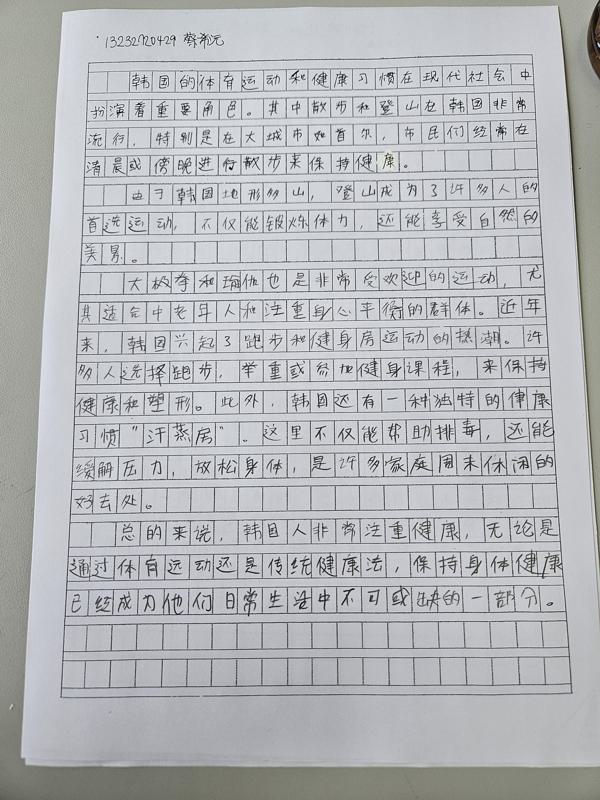 13232720429 蔡希元
韩国的体育运动和健康习惯在现代社会中
扮演着重要角色。其中散步和登山在韩国非常
流行，特别是在大城市如首尔，市民们经常在
清晨或傍晚进行散步来保持健康。
由于韩国地形多山，登山成为了许多人的
首选运动，不仅能锻炼体力，还能享受自然的
美景。
太极拳和瑜伽也是非常受欢迎的运动，尤
其适合中老年人和注重身心平衡的群体。近年
来，韩国兴起了跑步和健身房运动的热潮。许
多人选择跑步，举重或参加健身课程，来保持
健康和塑形。此外，韩国还有一种独特的健康
习惯"汗蒸房"。这里不仅能帮助排毒，还能
缓解压力，放松身体，是许多家庭周末休闲的
好去处。
总的来说，韩国人非常注重健康，无论是
通过体育运动还是传统健康法，保持身体健康
已经成为他们日常生活中不可或缺的一部分。